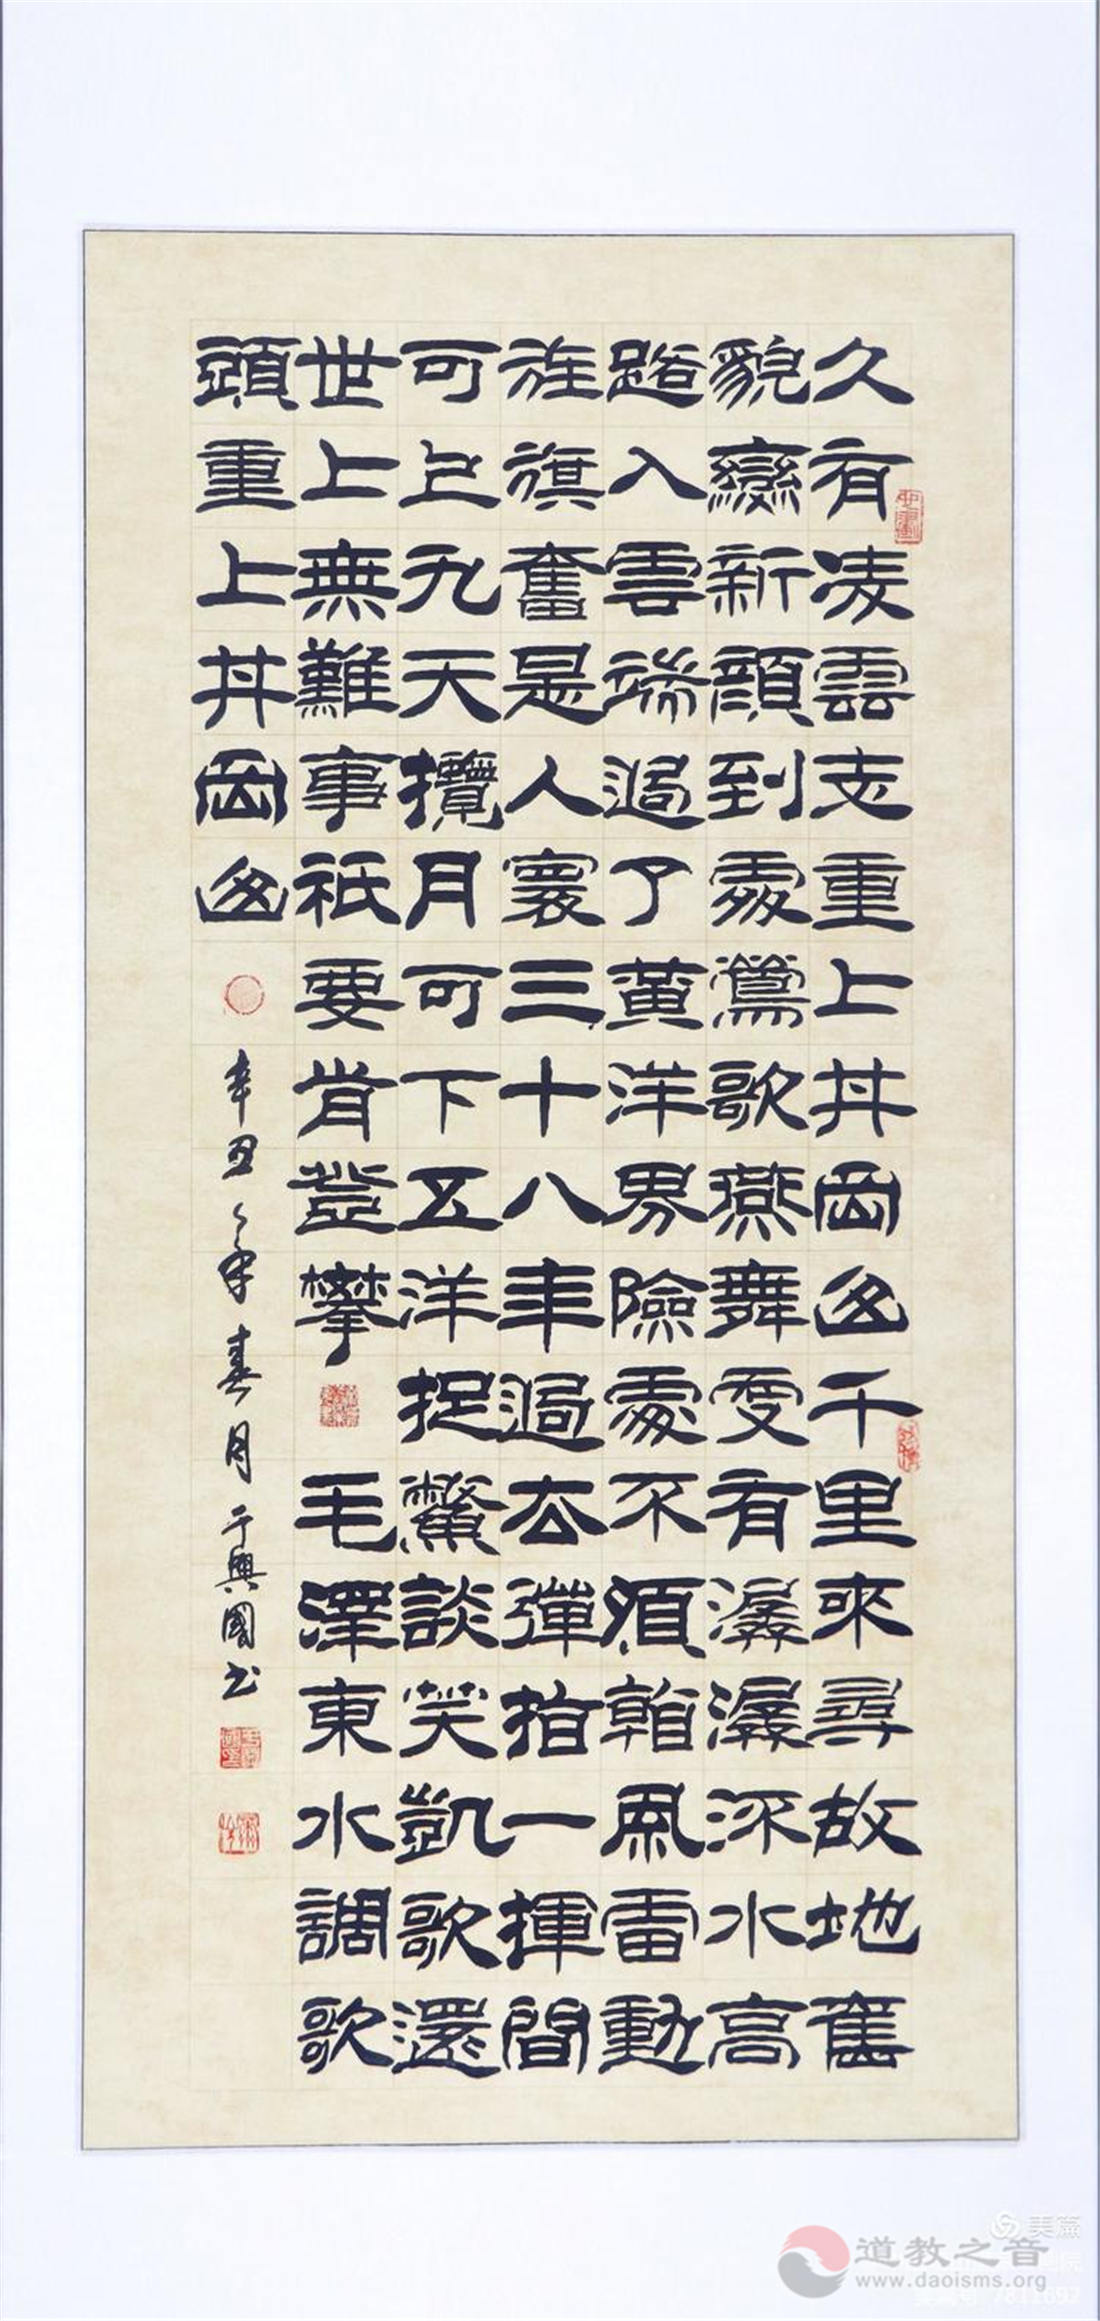 久有凌雲志重上井岡山千里來尋故地舊
貌變新顏到處鶯歌燕舞更有潺潺流水高
路入雲端過了黃洋界險處不須看風雷動
旌旗奮是人寰三十八年過去彈指一揮間
可上九天攬月可下五洋捉鱉談笑凱歌還
世上無難事祇要肯登攀 毛澤東水調歌
頭重上井岡山
辛丑之年春月于興國書
美篇
道教之音
www.daoisms.org